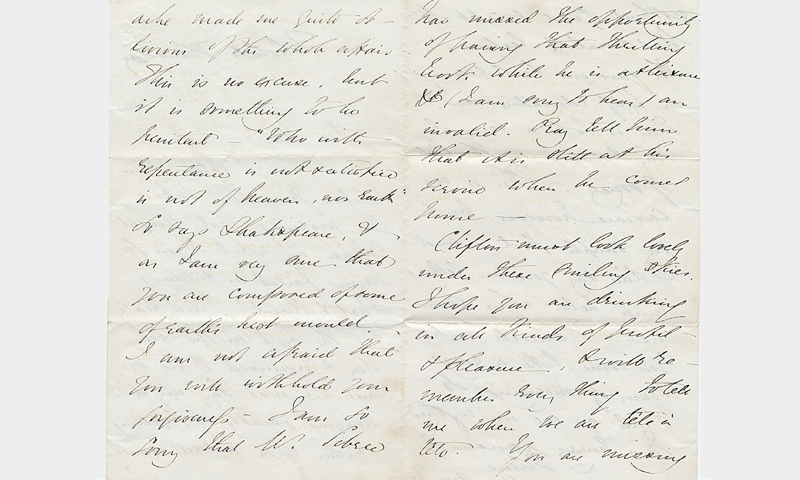 ache made me quite ob-
livious of the whole affair
This is no excuse, but
it is something to be
penitent – "Who with
repentance is not satisfied
is not of heaven, nor earth"
So says Shakspeare, &
as I am very sure that
you are composed of some
of earth's best mould.
I am not afraid that
you will withhold your
forgiveness – I am so
sorry that W.
has missed the opportunity
of having that thrilling
book while he is at leisure
& (I am sorry to hear) an
invalid. Pray tell him
that it is still at his
service when he comes
home —
Clifton must look lovely
under these smiling skies.
I hope you are drinking
in all kinds of profit
& pleasure, & will re-
member every thing to tell
me when we are tete a
tete. You are missing